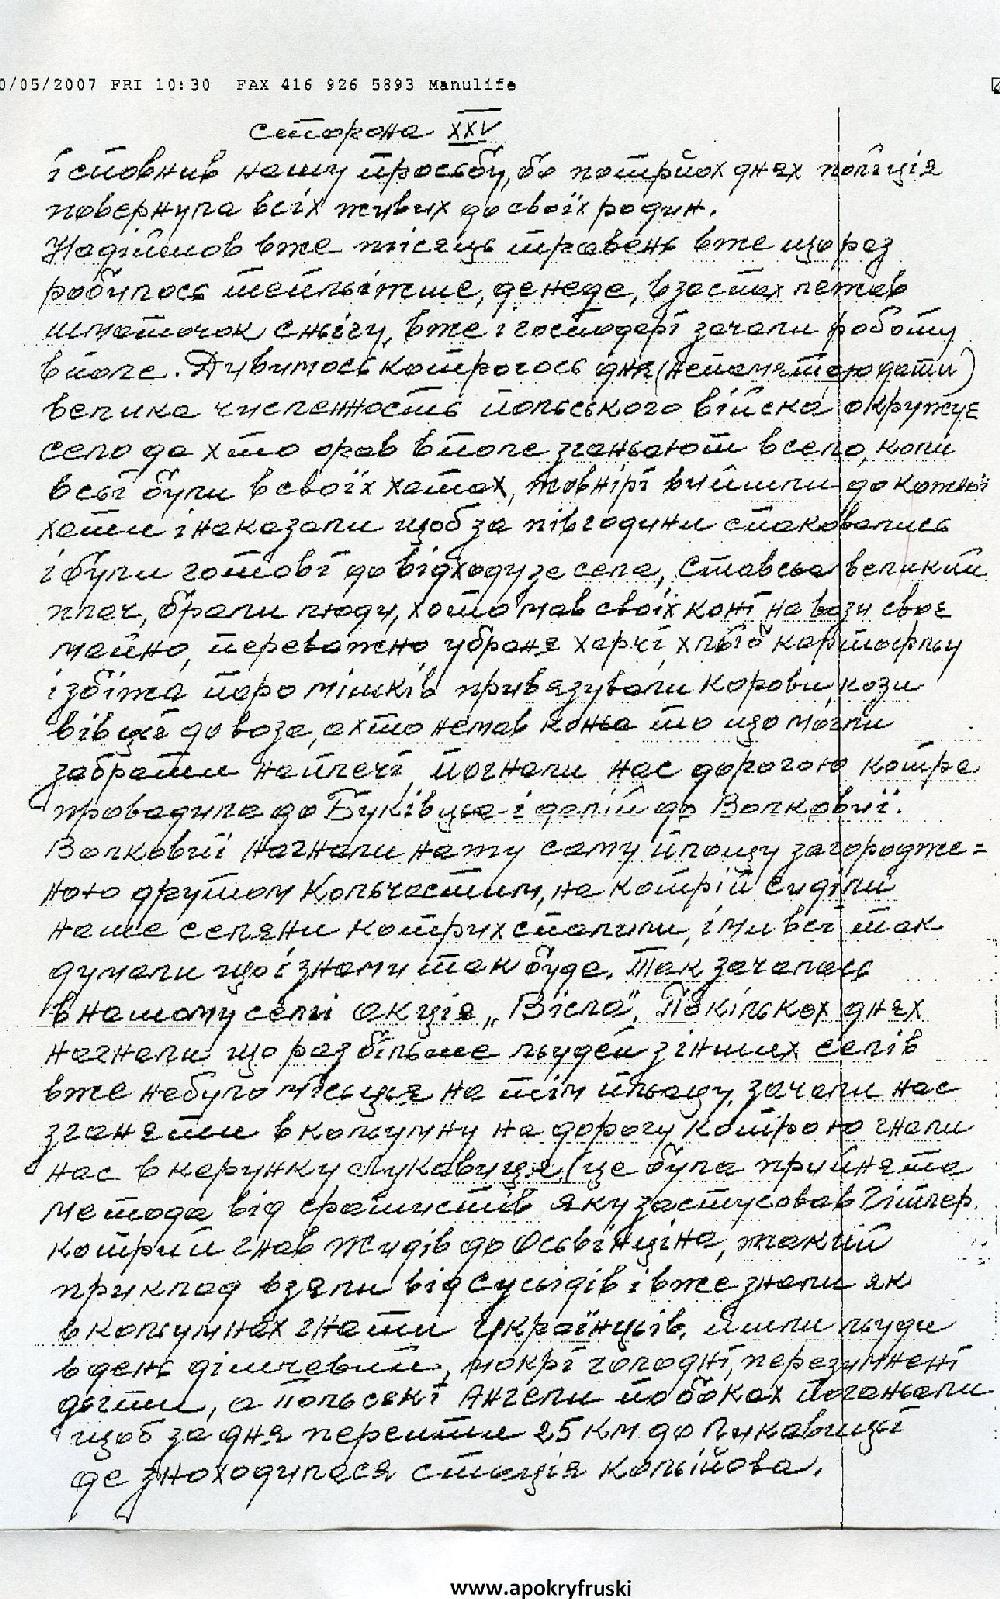 0/05/2007 FRI 10:30 FAX 416 926 5893 Manulife
сторона XXV
і сповнив нашу просьбу, бо потрйох днях поліція
повернула всіх живих до своїх родин.
Надійшов вже місяць травень вже що раз
робилось тепльіжше, де неде, взаспах лежав
шматочок сьнігу, вже і господарі зачали роботу
в поле. Дивимось котрогось дня (непамятаю дати)
велика численность польського війска окружує
село да хто орав в поле зганьают в село, коли
всьі були в своїх хатах, жовнірі вийшли до кожної
хати і наказали щоб за пів години спаковались
і були готові до відходу зе села, Ставсьа великий
плач, брали льуди, хто мав своїх коні на вози своє
майно, переважно убраня харчі, хльіб картофльу
і збіжа паро мішків привязували корови, кози
вівці до воза, а хто немав коньа то що могли
забрати на плечі, погнали нас дорогою котра
провадила до Буківцьа і далій до Волковиї.
Волковиї нагнали на ту саму площу загородже=
ною друтом кольчастим, на котрій сиділи
наше селяни котрих спалили, і ми всі так
думали що і знами так буде. Так зачалась
в нашому селі акція „Вісла". По кількох днях
нагнали що раз більше льудей з інших селів
вже небуло місьця на тім пльацу, зачали нас
зганяти в кольумну на дорогу котрою гнали
нас в керунку Лукавиця, (це була прийнята
метода від фашистів яку застусовав Гітлер.
котрий гнав жидів до Осьвінціна, такий
приклад взяли від сусьідів і вже знали як
в кольумнах гнати Українців, йшли льуди
в день дішчевий, мокрі голодні, перезимнені
дьіти, а польські Ангели по боках поганьали
щоб за дня перейти 25 км. до Лукавици
де зноходилася стація кольійова.
www.apokryfruski